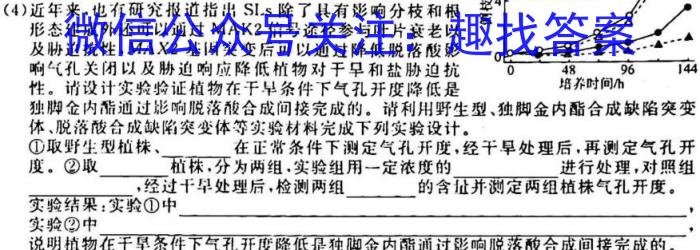 (4)近年来,也有研究报道指出SLs除了具有影响分枝和根
微信公众号关注:趣找答案
响气孔关闭以及胁迫响应降低植物对干旱和盐胁迫抗
性。请设计实验验证植物在干旱条件下气孔开度降低是
0 48 96 144
培养时间/h
独脚金内酯通过影响脱落酸合成间接完成的。请利用野生型、独脚金内酯合成缺陷突变
体、脱落酸合成缺陷突变体等实验材料完成下列实验设计。
①取野生型植株、________在正常条件下测定气孔开度,经干旱处理后,再测定气孔开
度。②取________植株,分为两组,实验组用一定浓度的________进行处理,对照组
________,经过干旱处理后,检测两组________的含量并测定两组植株气孔开度。
实验结果:实验①中________,
实验②中________,
说明植物在干旱条件下气孔开度降低是独脚金内酯通过影响脱落酸合成间接完成的。